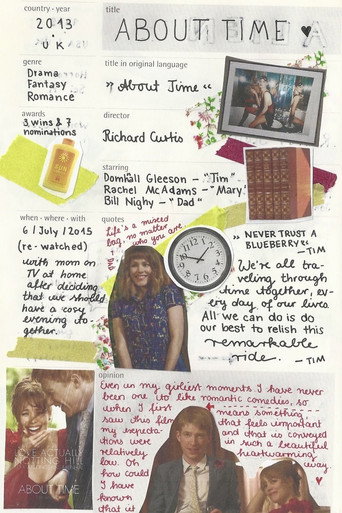 country · year
title
2013
·
UK
ABOUT TIME ♥
genre
Drama
Fantasy
Romance
title in original language
„ About Time “
awards
3 wins & 7
nominations
director
Richard Curtis
SUN
starring
Domhall Gleeson – "Tim"
Rachel McAdams – "Mary"
Bill Nighy – "Dad"
when · where · with
6 / July / 2015
(re-watched)
with mom on
TV at home
after deciding
that we should
have a cosy
evening to-
gether.
quotes
Life's a mixed
bag, no matter
who you
are
„ NEVER TRUST A
BLUEBERRY“
– TIM
We're all tra-
veling through
time together, ev-
ery day of our lives.
All we can do is do
our best to relish this
remarkable
ride. – TIM
LOVE ACTUALLY
NOTTING HILL
ABOUT TIME
opinion
Even in my girliest moments I have never
been one to like romantic comedies, so
when I first
saw this film
my expecta-
tions were
relatively
low. Oh
how could
I have
known
that it
means something
that feels important
and that is conveyed
in such a beautiful
heartwarming
way.